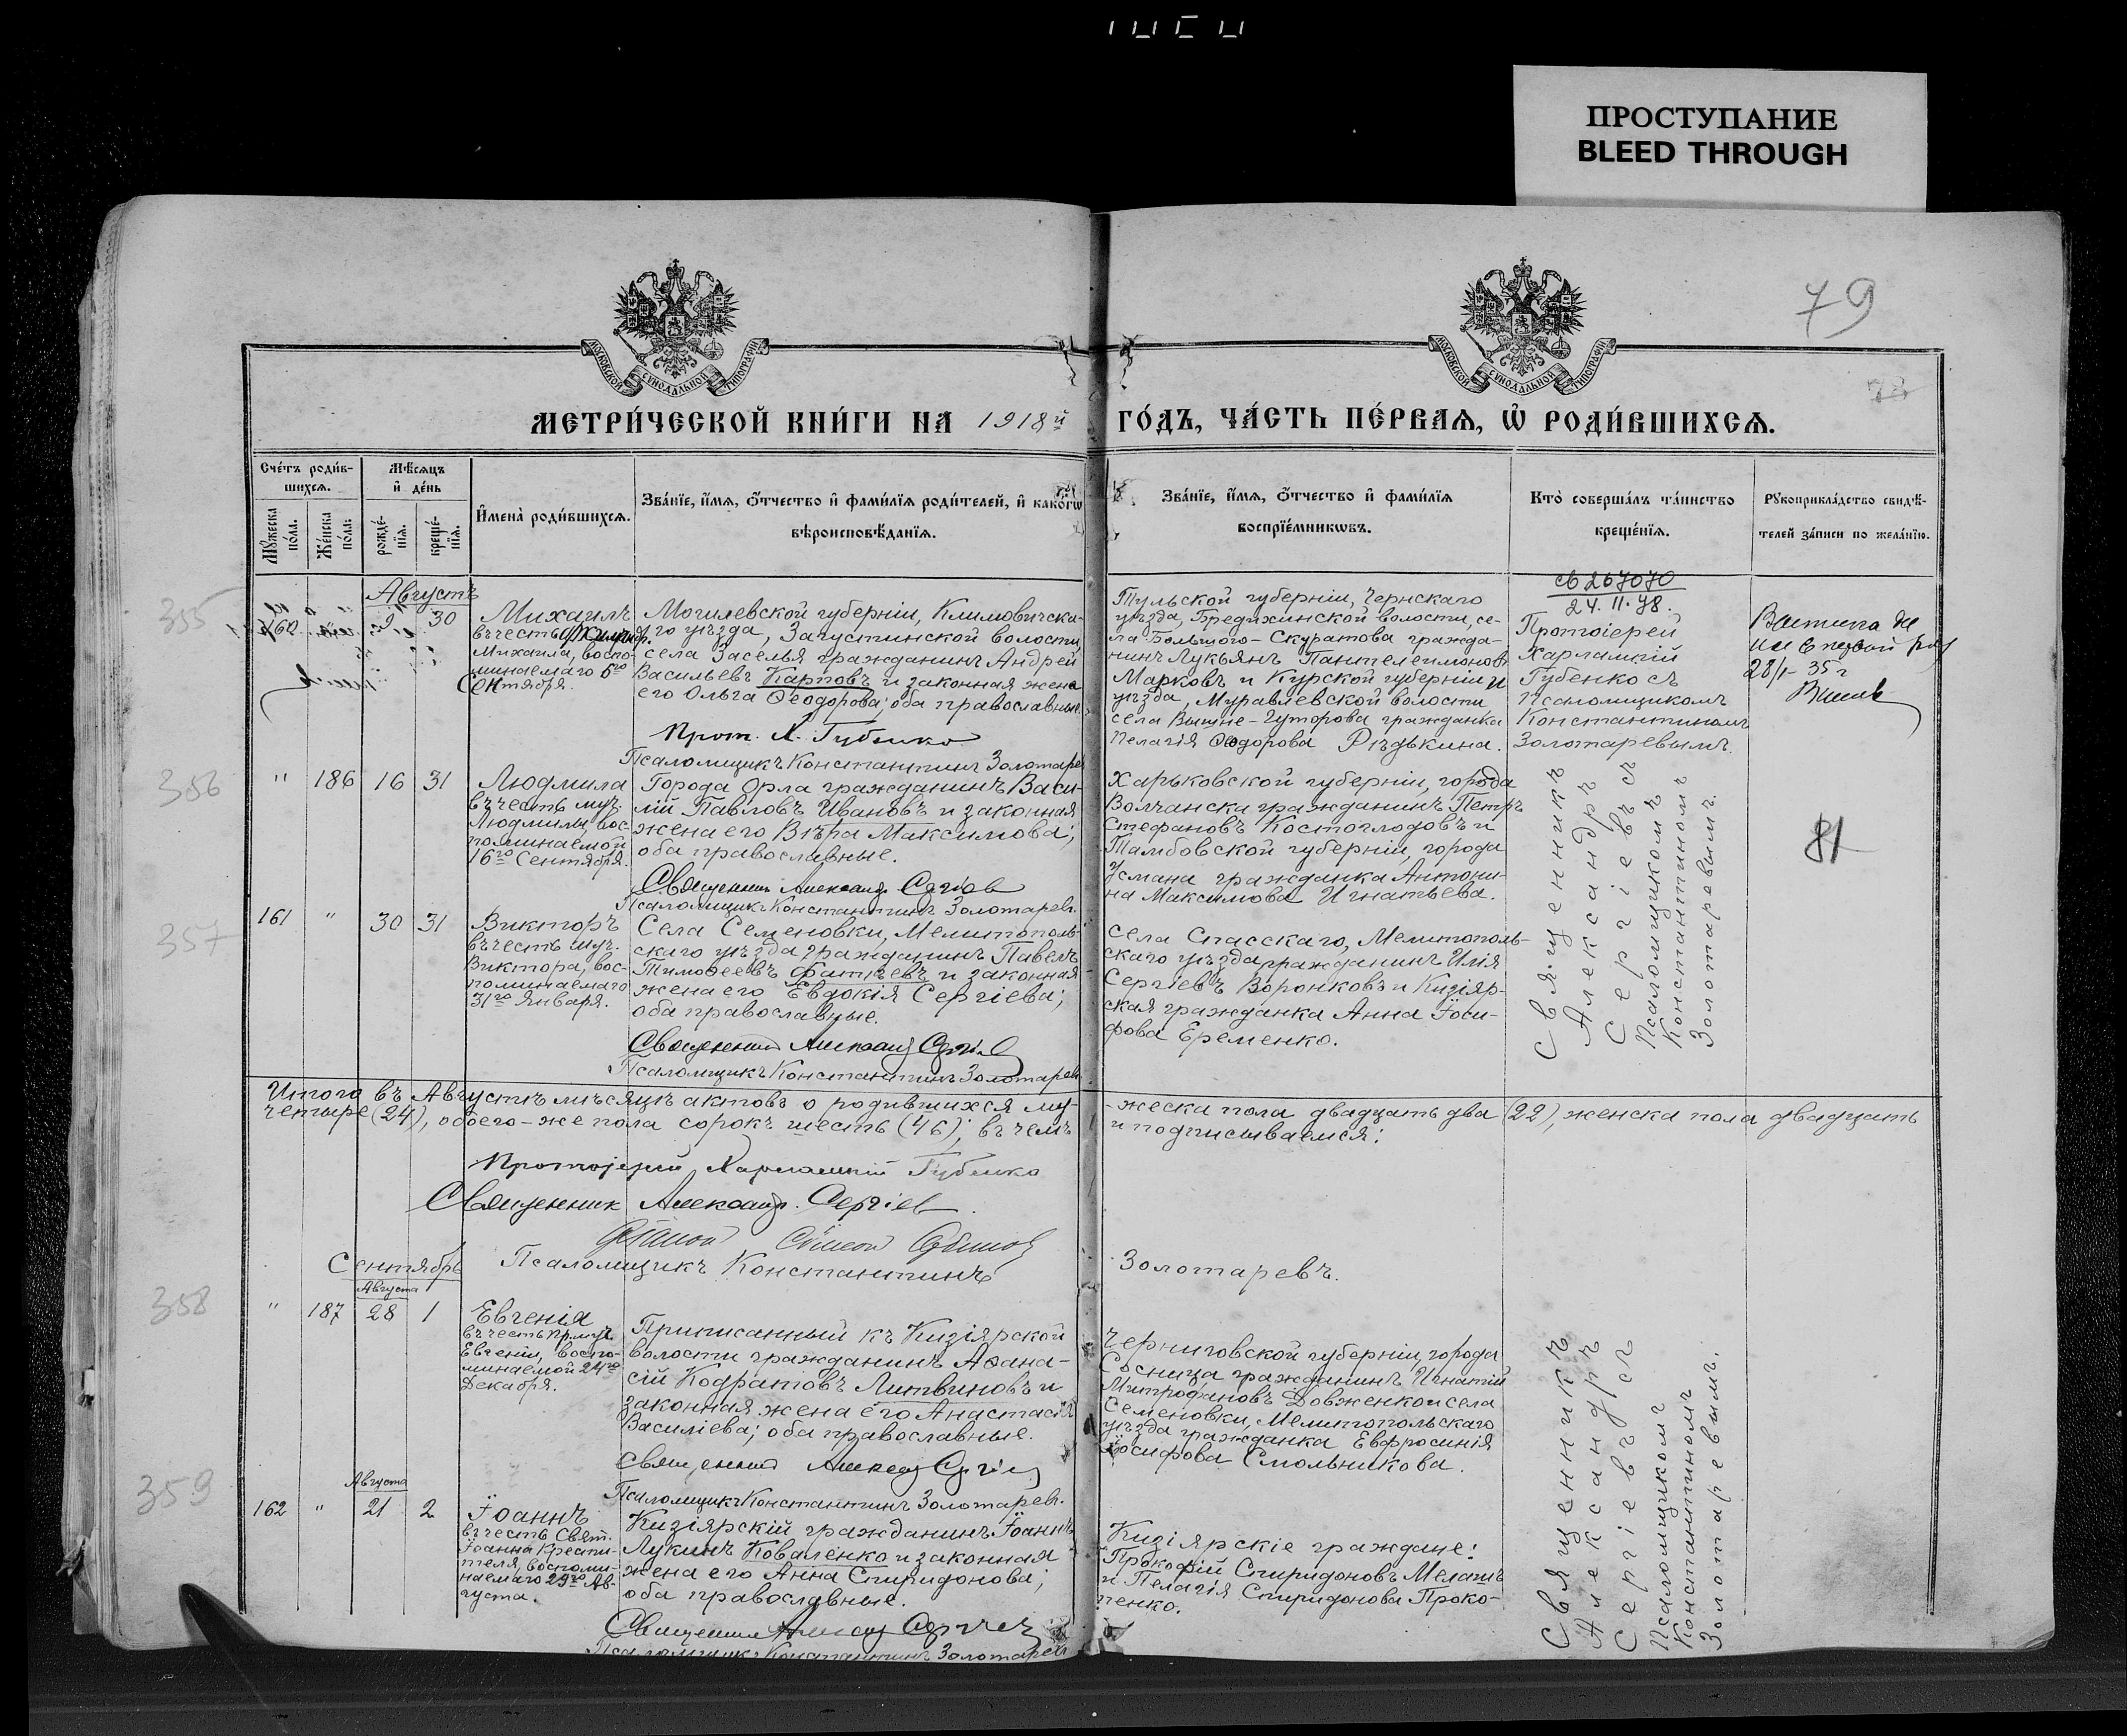 ПРОСТУПАНИЕ
BLEED THROUGH
79
МОСКОВСКОЙ СѴНОДАЛЬНОЙ ТИПОГРАФІИ
МОСКОВСКОЙ СѴНОДАЛЬНОЙ ТИПОГРАФІИ
МЕТРИ́ЧЕСКОЙ КНИ́ГИ НА 1918й ГО́ДЪ, ЧА́СТЬ ПЕ́РВАѦ, Ѡ҆ РОДИ́ВШИХСѦ.
Сче́тъ роди́в-
шихсѧ.
Мѣ́сѧцъ
и҆ де́нь
Мꙋ́жеска по́ла.
Же́нска по́ла.
рожде́-
нїѧ.
креще́-
нїѧ.
И҆мена̀ роди́вшихсѧ.
Зва́нїе, и҆́мѧ, ѻ҆́тчество и҆ фами́лїѧ роди́телей, и҆ како́гѡ
вѣроисповѣ́данїѧ.
Зва́нїе, и҆́мѧ, ѻ҆́тчество и҆ фами́лїѧ
воспрїе́мникѡвъ.
Кто̀ соверша́лъ та́инство
креще́нїѧ.
Рꙋкоприкла́дство свидѣ́-
телей за́писи по жела́нїю.
355
Августъ
160
9
30
Михаилъ
въ честь
Михаила, воспо-
минаемаго 6го
Сентября.
Могилевской губерніи, Климовичска-
го уѣзда, Загустинской волости,
села Заселья гражданинъ Андрей
Васильевъ Карповъ и законная жена
его Ольга Ѳеодорова; оба православные.
Прот. Х. Губенко
Псаломщикъ Константинъ Золотарев
Тульской губерніи, Чернскаго
уѣзда, Бредихинской волости, се-
ла Большого-Скуратова гражда-
нинъ Лукьянъ Пантелеимоновъ
Марковъ и Курской губерніи и
уѣзда, Муравлевской волости
села Вышне-Гуторова гражданка
Пелагія Ѳеодорова Рѣдькина.
св 267070
24.11.78.
Протоіерей
Харлампій
Губенко съ
псаломщикомъ
Константиномъ
Золотаревымъ.
28/I-35 г
356
"
186
16
31
Людмила
въ честь муч.
Людмилы, вос-
поминаемой
16го Сентября.
Города Орла гражданинъ Васи-
лій Павловъ Ивановъ и законная
жена его Вѣра Максимова;
оба православные.
Священник Александр Сергіев
Псаломщикъ Константинъ Золотарев.
Харьковской губерніи, города
Волчанска гражданинъ Петръ
Стефановъ Костоглодовъ и
Тамбовской губерніи, города
Усмана гражданка Антони-
на Максимова Игнатьева.
Священникъ
Александръ
Сергіевъ съ
псаломщикомъ
Константиномъ
Золотаревымъ.
81
357
161
"
30
31
Викторъ
въ честь муч.
Виктора, вос-
поминаемаго
31го Января.
Села Семеновки, Мелитополь-
скаго уѣзда гражданинъ Павелъ
Тимоѳеевъ Фатѣевъ и законная
жена его Евдокія Сергіева;
оба православные.
Священник Александр Сергіев
Псаломщикъ Константинъ Золотарев
Села Спасскаго, Мелитополь-
скаго уѣзда гражданинъ Илія
Сергіевъ Воронковъ и Кизіяр-
ская гражданка Анна Іоси-
фова Еременко.
Итого въ Августѣ мѣсяцѣ актовъ о родившихся му-
жеска пола двадцать два (22), женска пола двадцать
четыре (24), обоего-же пола сорокъ шесть (46); въ чемъ
и подписываемся:
Протоіерей Харлампій Губенко
Священник Александр Сергіев.
Псаломщикъ Константинъ Золотаревъ.
358
Сентябрь
Августа
"
187
28
1
Евгенія
въ честь прмуч.
Евгеніи, воспо-
минаемой 24го
Декабря.
Приписанный къ Кизіярской
волости гражданинъ Аѳана-
сій Кодратовъ Литвиновъ и
законная жена его Анастасія
Василіева; оба православные.
Священник Александр Сергіев
Псаломщикъ Константинъ Золотарев.
Черниговской губерніи, города
Сосница гражданинъ Игнатій
Митрофановъ Довженко и села
Семеновки, Мелитопольскаго
уѣзда гражданка Евфросинія
Іосифова Смольникова.
Священникъ
Александръ
Сергіевъ съ
псаломщикомъ
Константиномъ
Золотаревымъ.
359
Августа
162
"
21
2
Іоаннъ
въ честь Свят.
Іоанна Крести-
теля, воспоми-
наемаго 29го Ав-
густа.
Кизіярскій гражданинъ Іоаннъ
Лукинъ Коваленко и законная
жена его Анна Спиридонова;
оба православные.
Священник Александр Сергіев
Псаломщикъ Константинъ Золотарев
Кизіярскіе граждане:
Прокофій Спиридоновъ Мелашъ
и Пелагія Спиридонова Проко-
пенко.